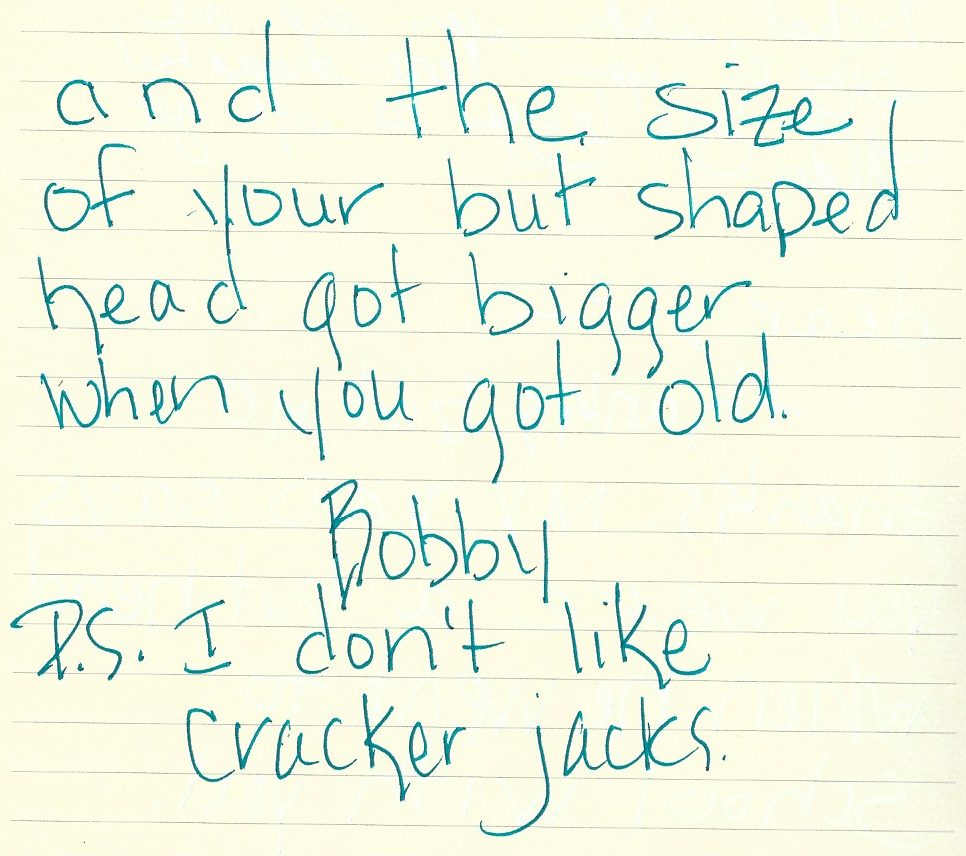 and the size
of your but shaped
head got bigger
when you got old.
Bobby
P.S. I don't like
cracker jacks.